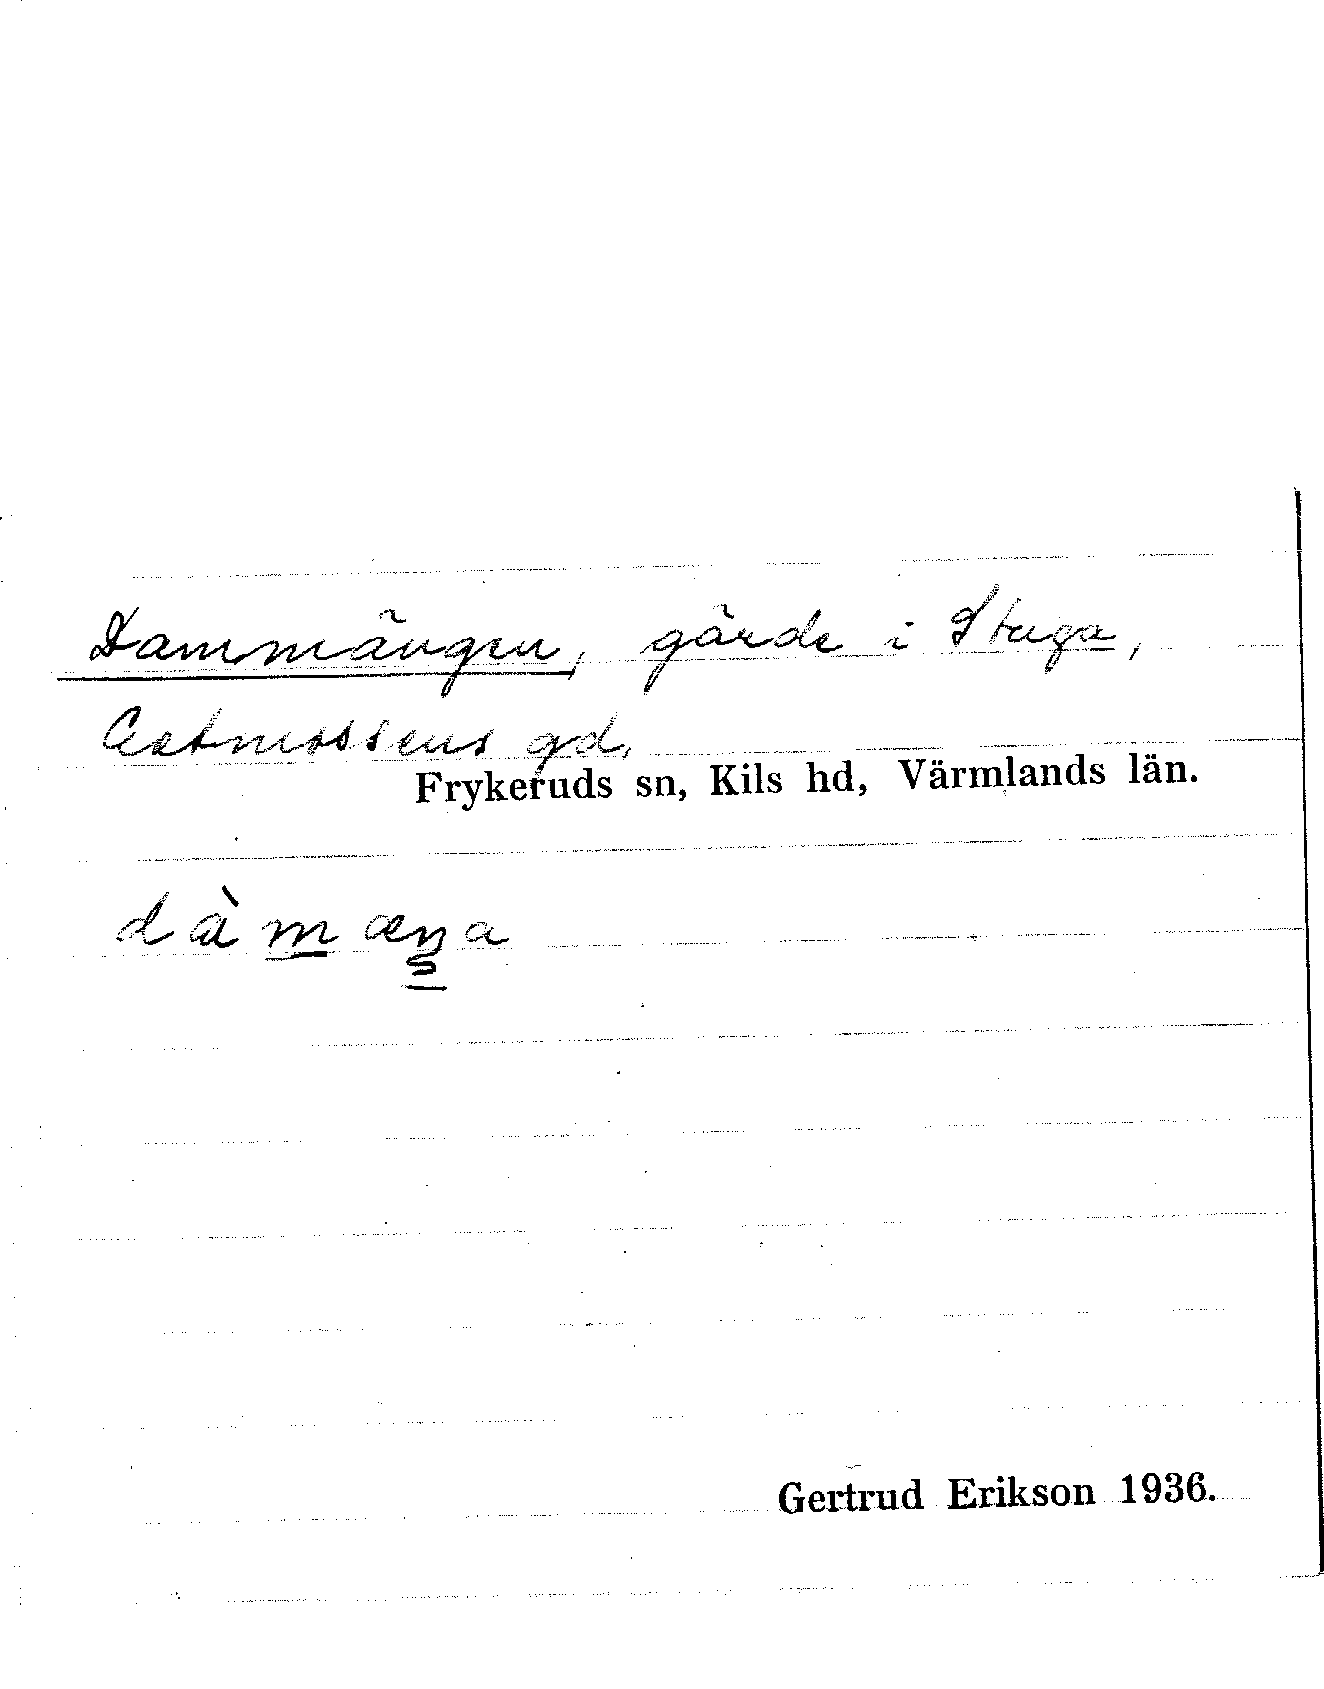 Dammängen, gärde i Stuga,
gd,
Frykeruds sn, Kils hd, Värmlands län.
dàmæŋa
Gertrud Erikson 1936.